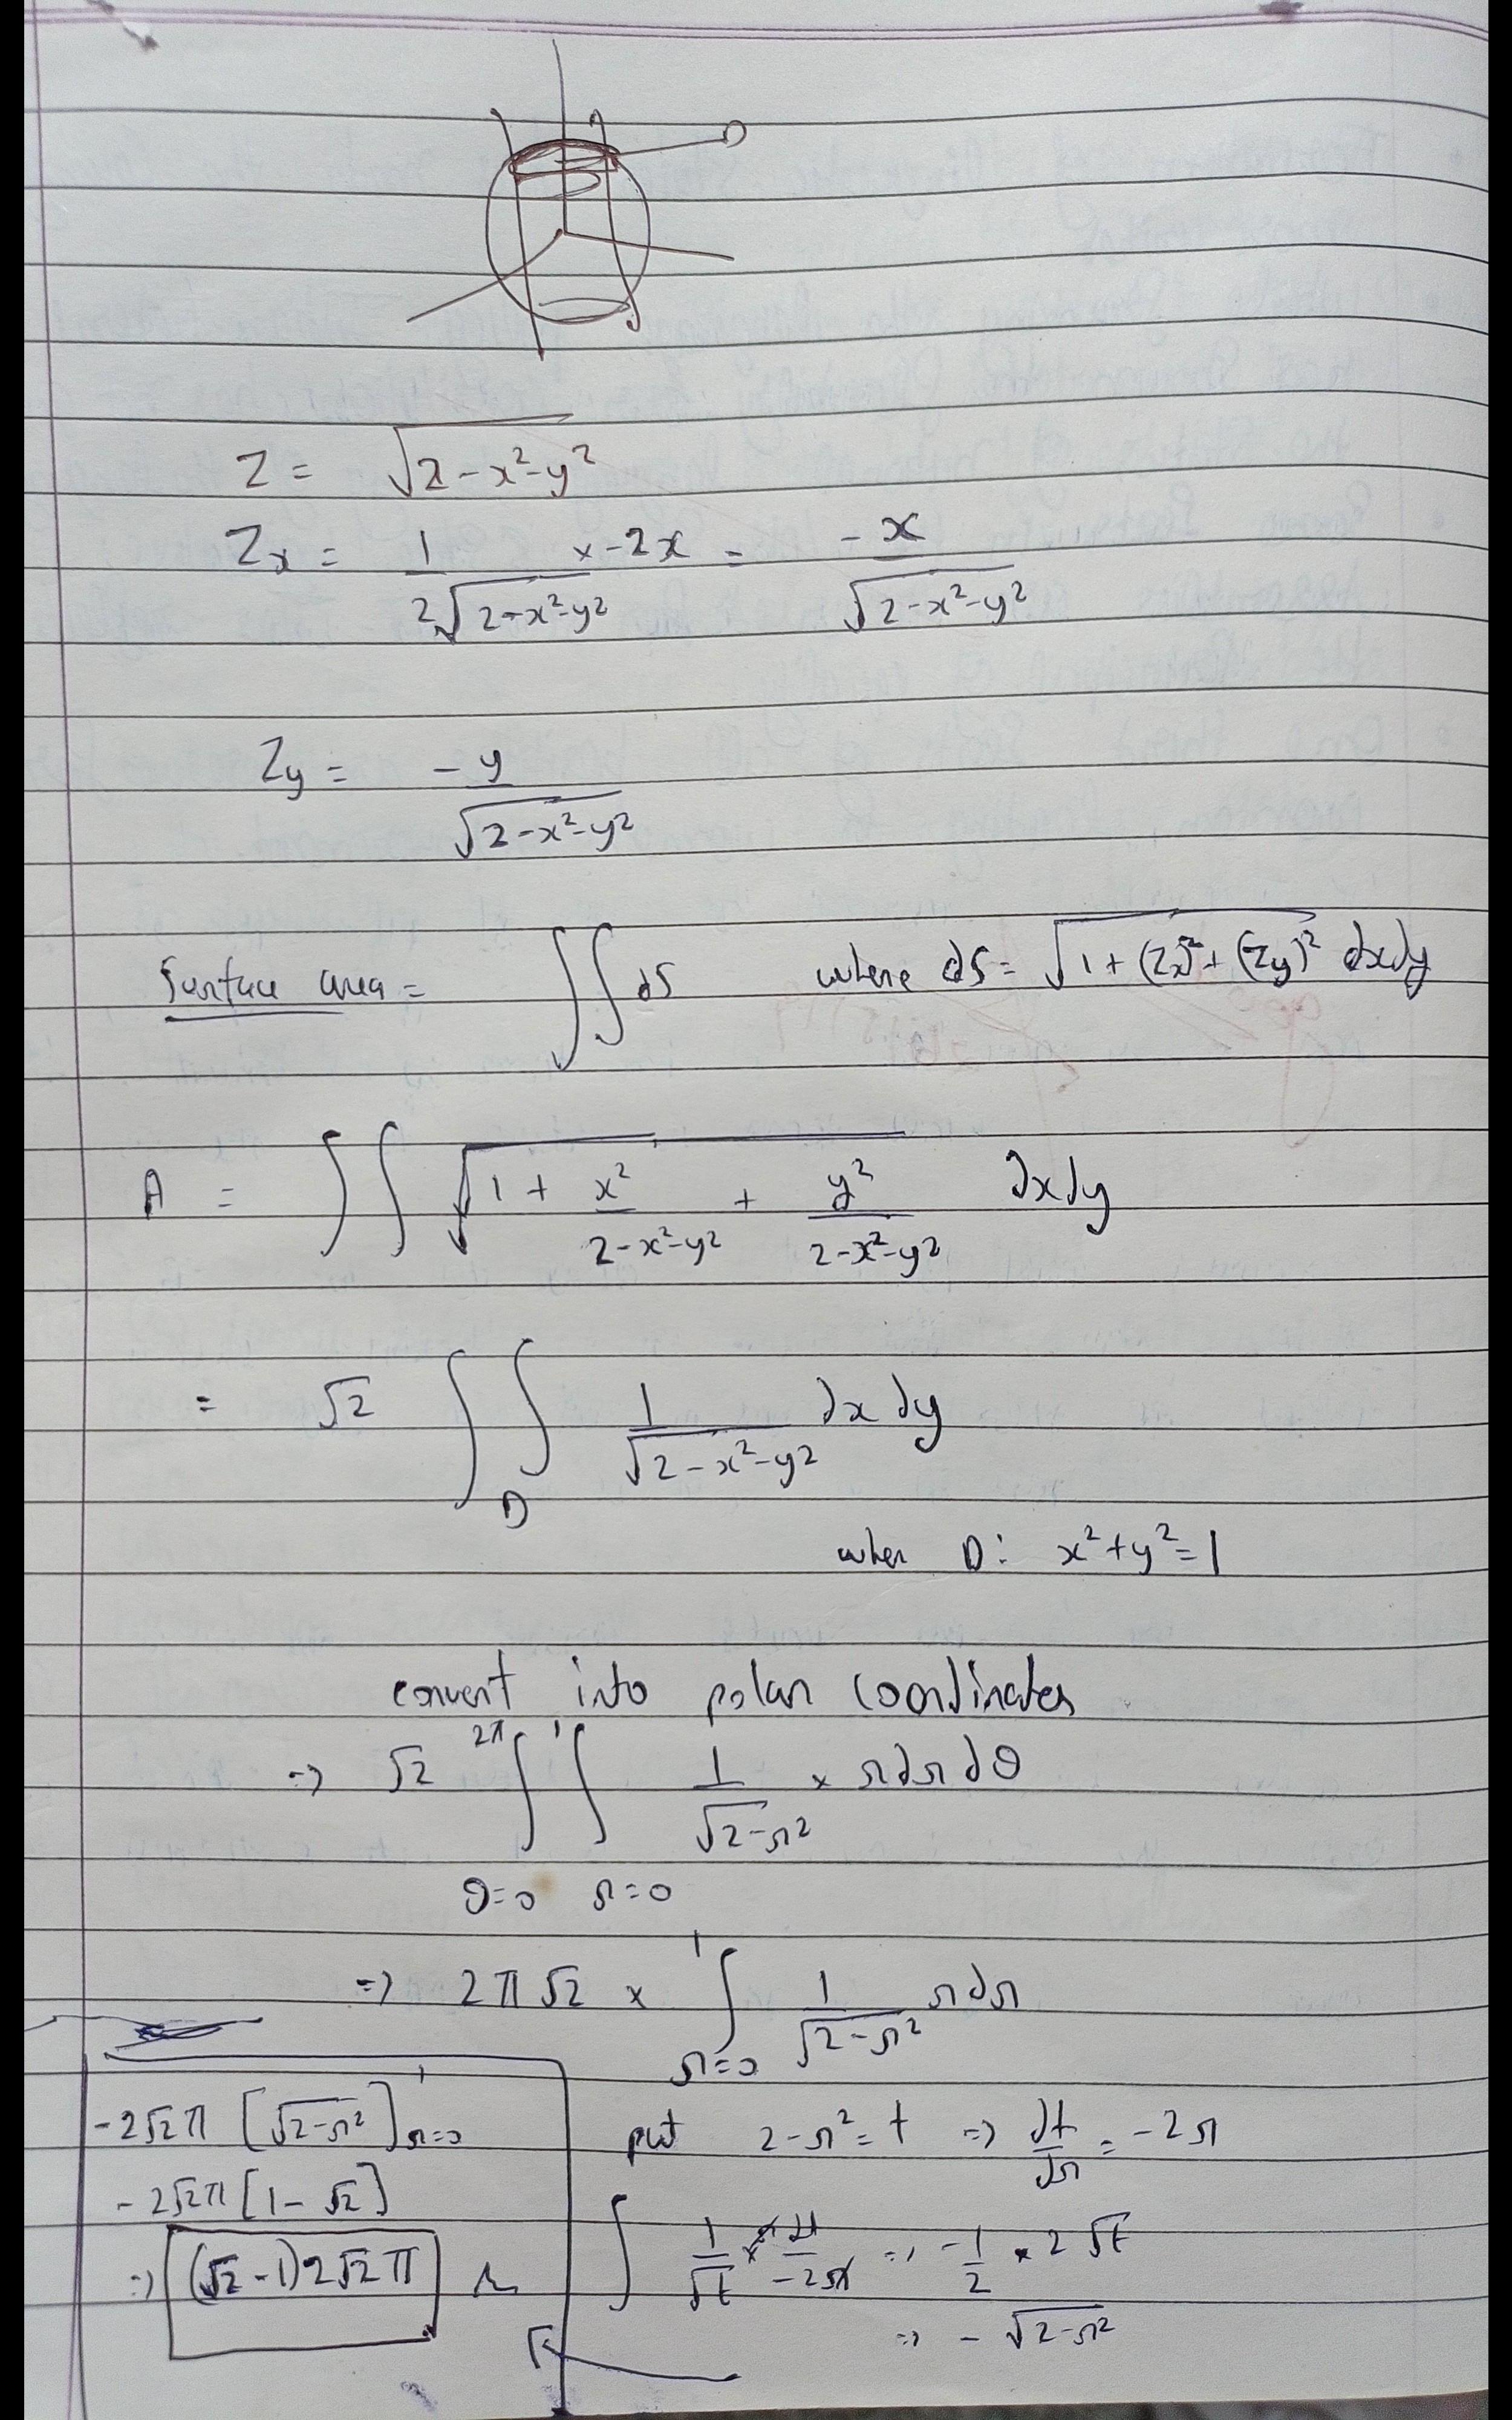 D
Z = √(2-x²-y²)
Zx = 1/(2√(2-x²-y²)) × -2x = -x/√(2-x²-y²)
Zy = -y/√(2-x²-y²)
Surface area = ∫∫ dS where dS = √(1+(Zx)²+(Zy)²) dxdy
A = ∫∫ √(1 + x²/(2-x²-y²) + y²/(2-x²-y²)) dxdy
= √2 ∫∫_D 1/√(2-x²-y²) dx dy
when D: x²+y²=1
convert into polar coordinates
=> √2 ∫_{θ=0}^{2π} ∫_{r=0}^{1} 1/√(2-r²) × r dr dθ
=> 2π√2 × ∫_{r=0}^{1} 1/√(2-r²) r dr
put 2-r² = t => dt/dr = -2r
∫ 1/√t × r dt/(-2r) => -1/2 × 2√t
=> -√(2-r²)
-2√2π [√(2-r²)]_{r=0}^{1}
-2√2π [1-√2]
=> (√2-1)2√2π